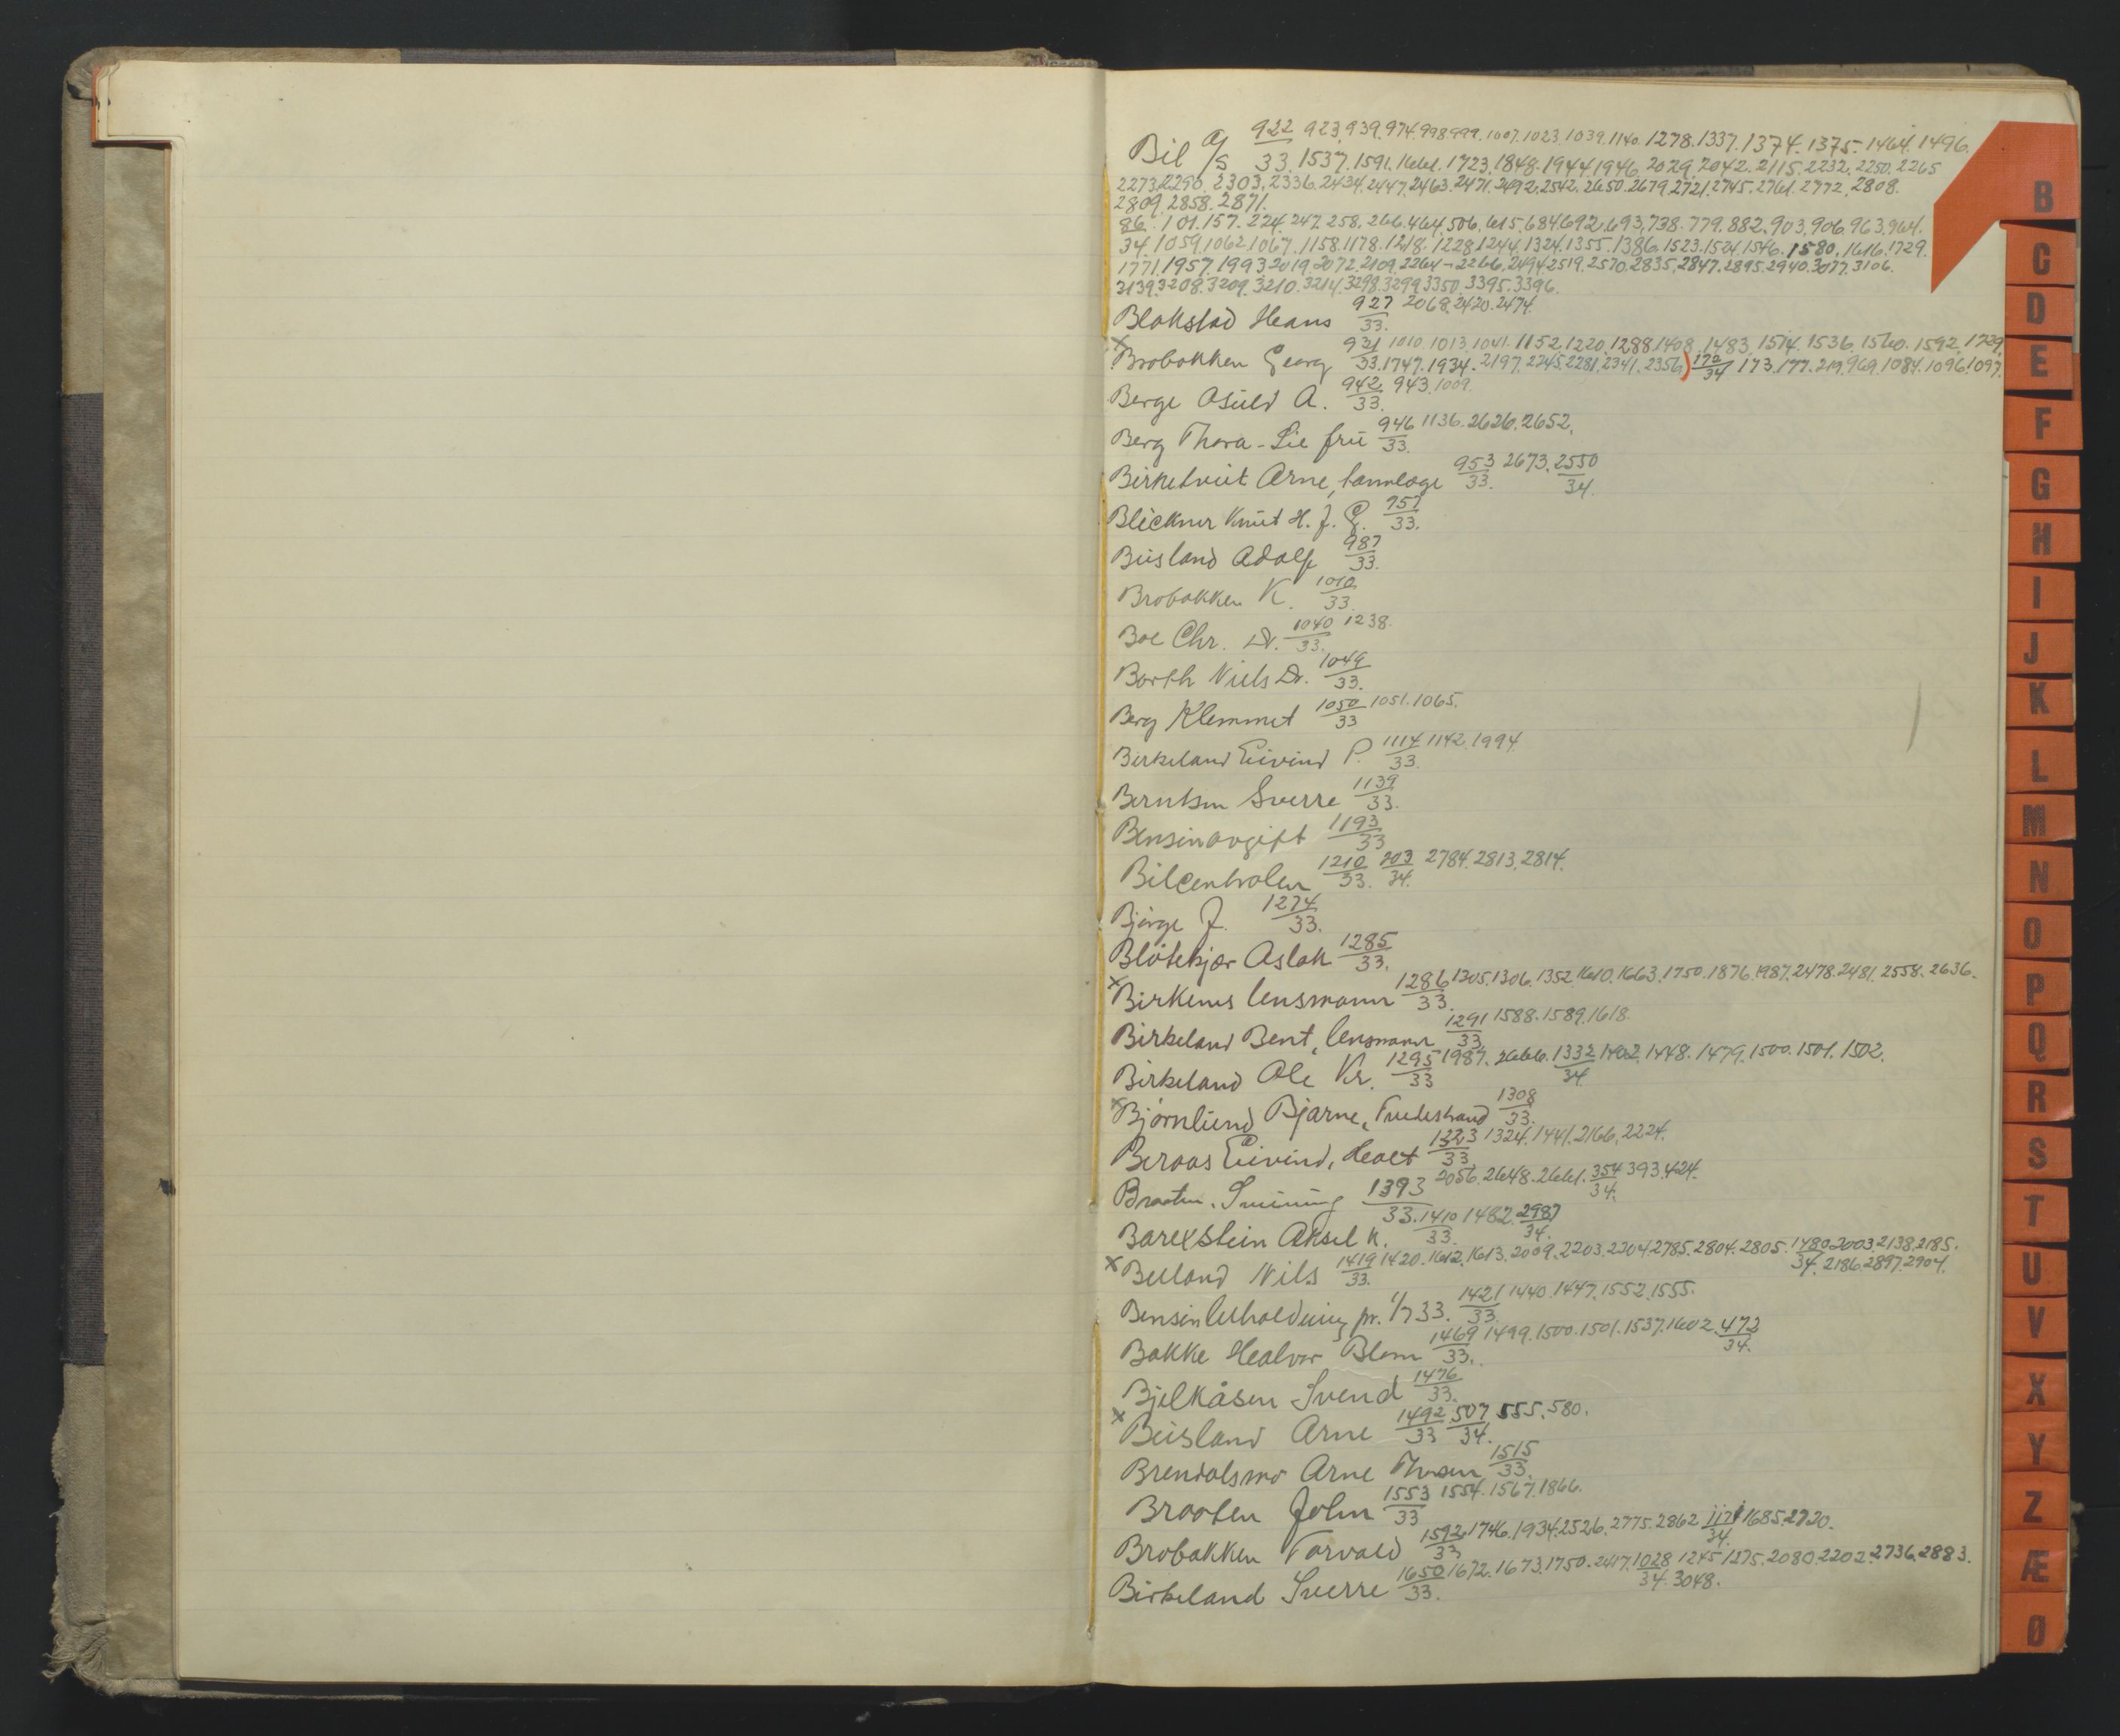 Bil A/S 922 923, 939, 974. 998 999. 1007. 1023. 1039. 1140. 1278. 1337. 1374. 1375. 1464. 1496.
33. 1537. 1591. 1661. 1723. 1848. 1944. 1946. 2029. 2042. 2115. 2232. 2250. 2265
2273. 2290. 2303. 2336. 2434. 2447. 2463. 2471. 2492. 2542. 2650. 2679. 2721. 2745. 2761. 2772. 2808.
2809. 2858. 2871.
86. 101. 157. 224. 247. 258. 266. 464. 506. 615. 684. 692. 693. 738. 779. 882. 903. 906. 963. 964.
34. 1059. 1062. 1067. 1158. 1178. 1218. 1228. 1244. 1324. 1355. 1386. 1523. 1524. 1546. 1580. 1616. 1729.
1771. 1957. 1993. 2019. 2072. 2109. 2264-2266. 2494. 2519. 2570. 2835. 2847. 2895. 2940. 3077. 3106.
3139. 3208. 3209. 3210. 3214. 3298. 3299. 3350. 3395. 3396.
Blakstad Hans 927/33. 2068. 2420. 2474.
x Brobakken Georg 931/33. 1010. 1013. 1041. 1152. 1220. 1288. 1408. 1483. 1514. 1536. 1560. 1592. 1729.
1747. 1934. 2197. 2245. 2281. 2341. 2356) 172/34 173. 177. 219. 969. 1084. 1096. 1097.
Berge Asuld A. 942/33. 943. 1009.
Berg Thora-Lie frü 946/33. 1136. 2626. 2652.
Birketveit Arne, tannlæge 953/33. 2673. 2550/34.
Bleckner Knut H. J. G. 957/33.
Buisland Adolf 987/33.
Brobakken K. 1010/33.
Boe Chr. Dr. 1040/33. 1238.
Barth Niels Dr. 1049/33.
Berg Klemmet 1050/33 1051. 1065.
Birkeland Eivind P. 1114/33. 1142. 1994.
Berntsen Sverre 1139/33.
Bensinavgift 1193/33
Bilcentralen 1210/33. 203/34. 2784. 2813. 2814.
Bjørge J. 1274/33.
Bløtekjær Aslak 1285/33.
x Birkenes lensmann 1286/33. 1305. 1306. 1352. 1610. 1663. 1750. 1876. 1987. 2478. 2481. 2558. 2636.
Birkeland Bent, lensmann 1291/33. 1588. 1589. 1618.
Birkeland Ole Kr. 1295/33 1987. 2666. 1332/34 1402. 1448. 1479. 1500. 1501. 1502.
x Bjørnlund Bjarne, Tvedestrand 1308/33.
Beraas Eivind, Heolt 1323/33 1324. 1441. 2166. 2224.
Braaten. 1393/33. 2056. 2648. 2661. 354/34. 393. 424.
Barexstein Aksel K. 1410/33. 1482. 2987/34.
x Beuland Nils 1419/33. 1420. 1612. 1613. 2009. 2203. 2204. 2785. 2804. 2805. 1480/34. 2003. 2138. 2185.
2186. 2897. 2904.
Bensinbeholdning pr. 1/7 33. 1421/33. 1440. 1447. 1552. 1555.
Bakke Halvor Blom 1469/33. 1499. 1500. 1501. 1537. 1602. 472/34.
Bjelkåsen Svend 1476/33.
x Beisland Arne 1492/33 507/34. 555. 580.
Brendalsmo Arne 1515/33.
Braaten John 1553/33 1554. 1567. 1866.
Brobakken Torvald 1592/33 1746. 1934. 2526. 2775. 2862 1171/34. 1685. 2720.
Birkeland Sverre 1650/33. 1672. 1673. 1750. 2417. 1028/34. 1245. 1275. 2080. 2202. 2736. 2883.
3048.
B
C
D
E
F
G
H
I
J
K
L
M
N
O
P
Q
R
S
T
U
V
X
Y
Z
Æ
Ø